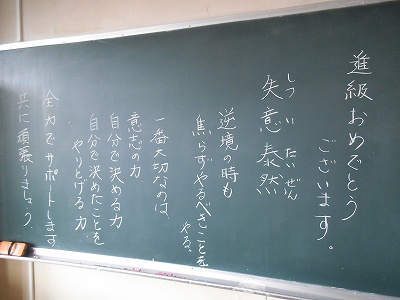 進級おめでとう
ございます。
しついたいぜん
失意泰然
逆境の時も
焦らずやるべきことを
やる。
一番大切なのは、
意志の力
自分で決める力
自分で決めたことを
やりとげる力.
全力でサポートします
共に頑張りましょう。